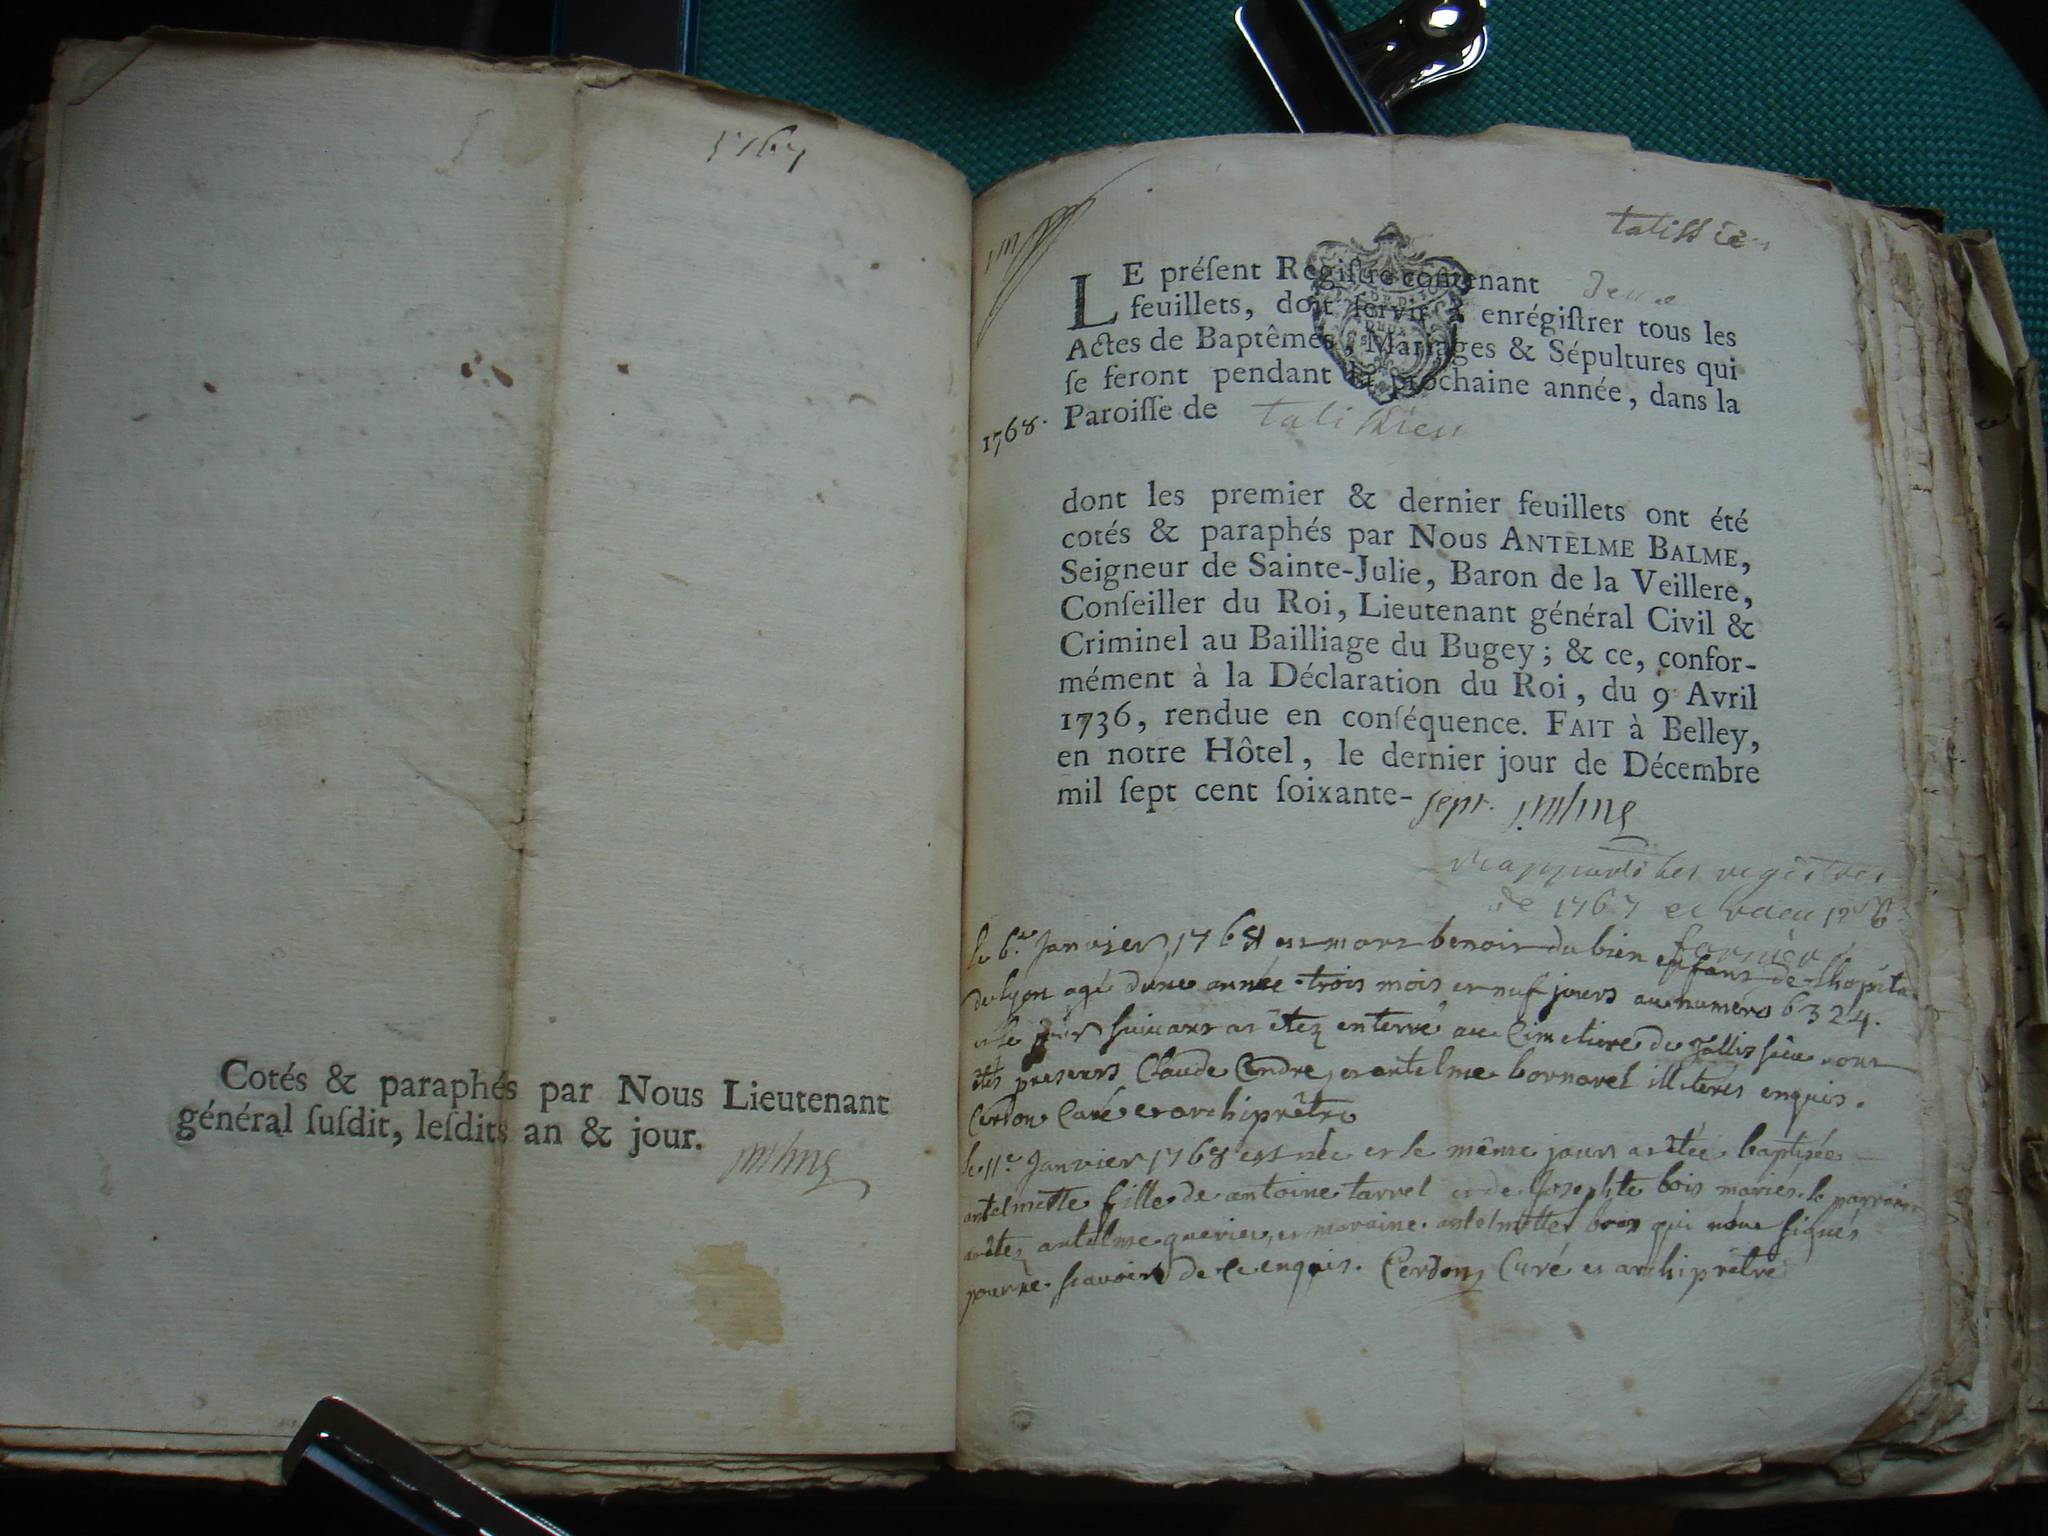 1767
Cotés & paraphés par Nous Lieutenant
général ſuſdit, leſdits an & jour.
talissieu
LE préſent Regiſtre contenant deux
feuillets, doit ſervir à enrégiſtrer tous les
Actes de Baptêmes, Mariages & Sépultures qui
ſe feront pendant la prochaine année, dans la
1768.
Paroiſſe de talissieu
dont les premier & dernier feuillets ont été
cotés & paraphés par Nous ANTELME BALME,
Seigneur de Sainte-Julie, Baron de la Veillere,
Conſeiller du Roi, Lieutenant général Civil &
Criminel au Bailliage du Bugey ; & ce, confor-
mément à la Déclaration du Roi, du 9 Avril
1736, rendue en conſéquence. FAIT à Belley,
en notre Hôtel, le dernier jour de Décembre
mil ſept cent ſoixante-sept.
registres
de 1767 et
le 6e Janvier 1768 est mort benoit du bien enfant de lhopital
de lyon agé dune année trois mois et neuf jours au numero 6324.
et le jour suivant at étez enterré au Cimetiere de Tallissieu ont
étés presents Claude Cendre et antelme bornarel illiterés enquis.
Cerdon Curé et archiprêtre
le 11e Janvier 1768 est née et le même jour at étée baptisée
antelmette fille de antoine tarrel et de Josephte bois mariés le parrain
at étez antelme et maraine antelmette bois qui nont signés
pour ne scavoir de ce enquis. Cerdon Curé et archiprêtre